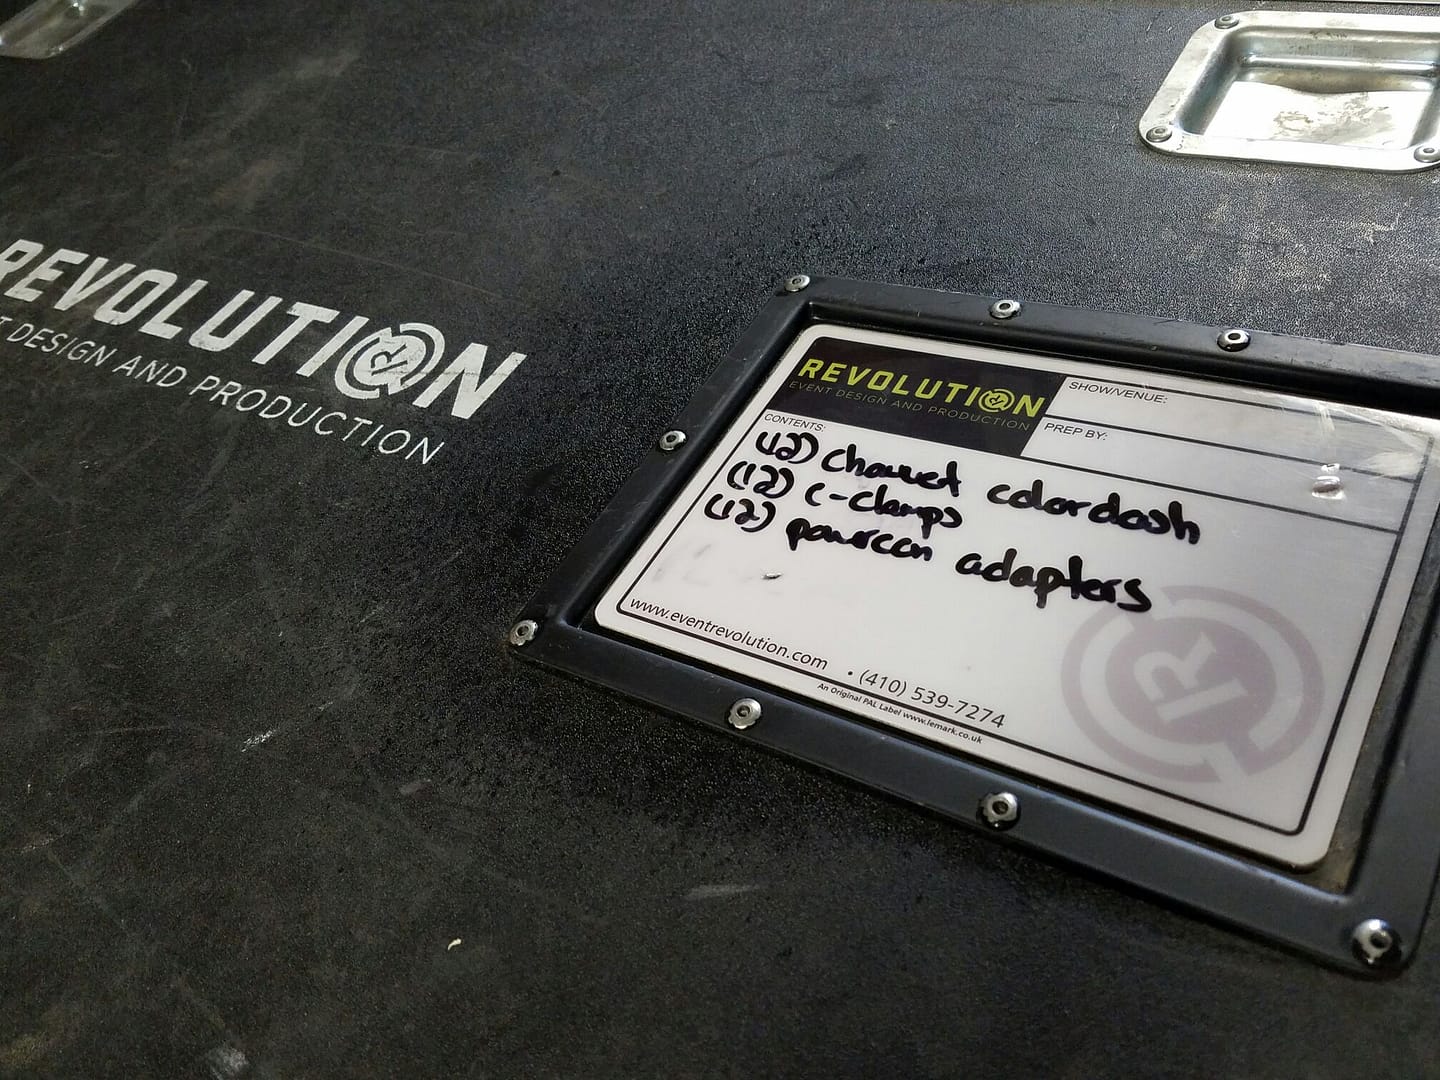 REVOLUTION
T DESIGN AND PRODUCTION
REVOLUTION
EVENT DESIGN AND PRODUCTION
SHOW/VENUE:
PREP BY:
CONTENTS:
(12) Chauvet colordash
(12) C-Clamps
(12) powercon adapters
www.eventrevolution.com • (410) 539-7274
An Original PAL Label www.lemark.co.uk
R